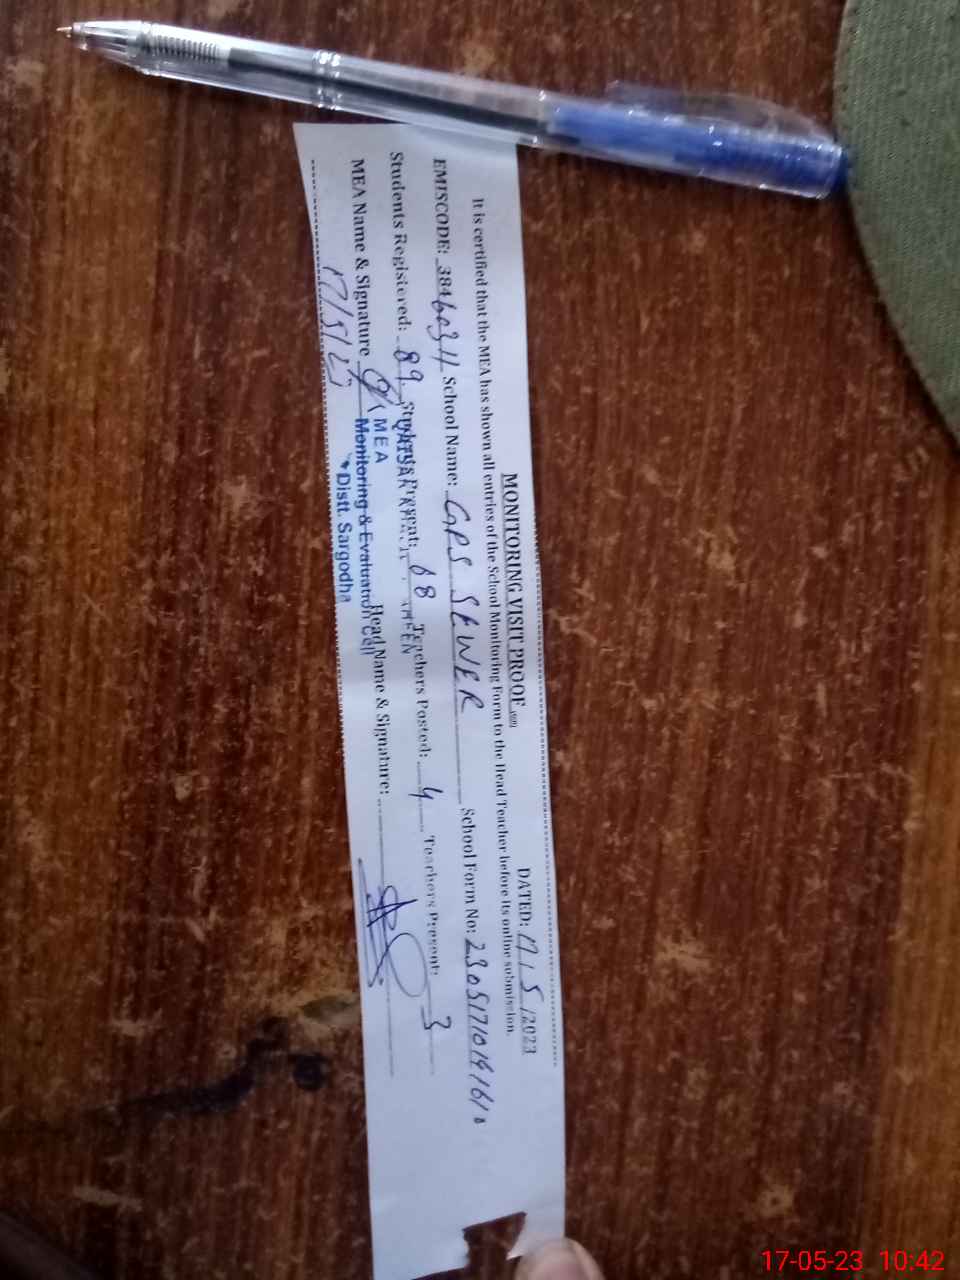 MONITORING VISIT PROOF
DATED: 17/5/2023
It is certified that the MEA has shown all entries of the School Monitoring Form to the Head Teacher before its online submission.
EMISCODE: 384 School Name: GPS SEWER School Form No:
Students Registered: 89 Students Present: 68 Teachers Posted: 4 Teachers Present: 3
MEA Name & Signature Head Name & Signature:
17/5/23
MEA
Monitoring & Evaluation Cell
Distt. Sargodha
17-05-23 10:42